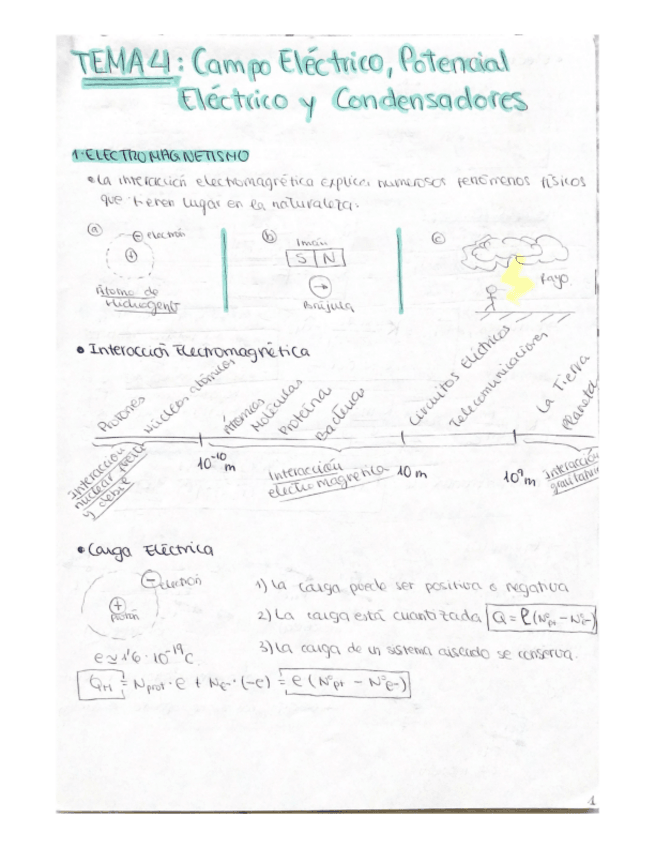 TEMA 4: Campo Eléctrico, Potencial
Eléctrico y Condensadores
1. ELECTROMAGNETISMO
La interacción electromagnética explica numerosos fenómenos físicos
que tienen lugar en la naturaleza.
a
electrón
Átomo de
Hidrógeno
b
Imán
S N
Brújula
c
Rayo
Interacción Electromagnética
Protones
Núcleos atómicos
Átomos
Moléculas
Proteína
Bacteria
Circuitos eléctricos
Telecomunicaciones
La Tierra
Planeta
10⁻¹⁰ m
10 m
10⁹ m
Interacción
nuclear fuerte
y débil
Interacción
electromagnética
Interacción
Carga Eléctrica
− electrón
+
protón
e ≃ 1'6 · 10⁻¹⁹ C
1) La carga puede ser positiva o negativa
2) La carga está cuantizada Q = e (Nºpt − Nºe−)
3) La carga de un sistema aislado se conserva.
= Nprot · e + Ne− · (−e) = e (Nºpt − Nºe−)
1